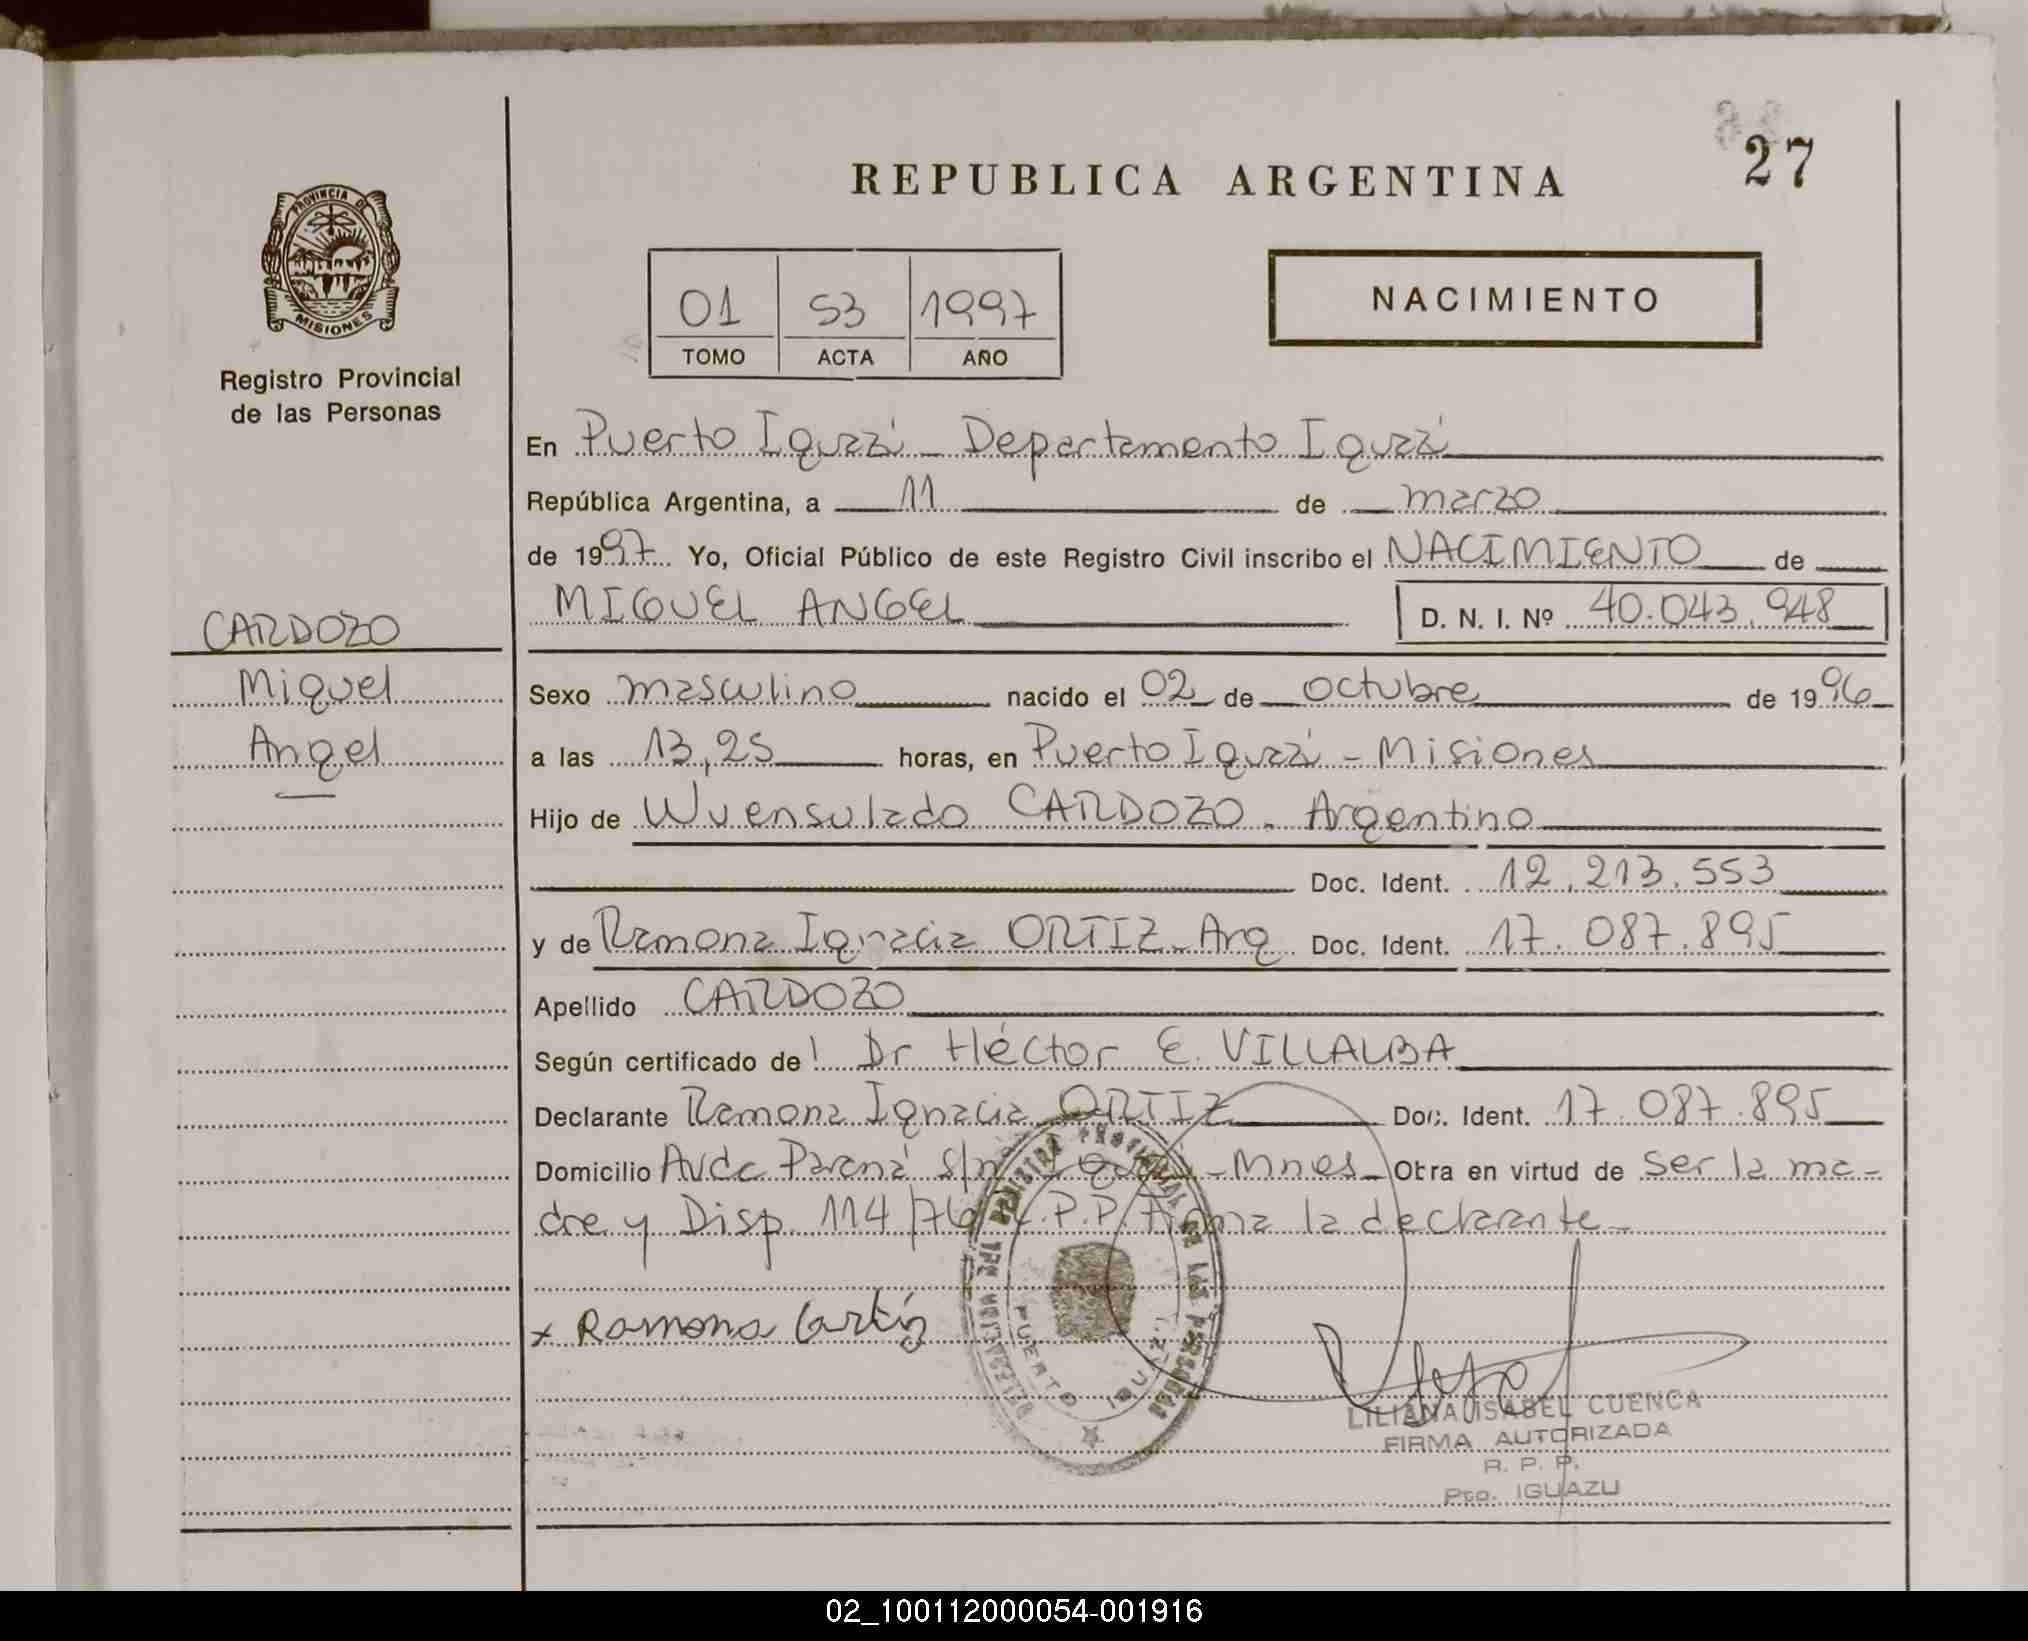 27
REPUBLICA ARGENTINA
PROVINCIA DE
MISIONES
Registro Provincial
de las Personas
01 53 1997
TOMO ACTA AÑO
NACIMIENTO
En Puerto Iguazú - Departamento Iguazú
República Argentina, a 11 de marzo
de 1997 Yo, Oficial Público de este Registro Civil inscribo el NACIMIENTO de
MIGUEL ANGEL D. N. I. Nº 40.043.948
CARDOZO
Miguel
Angel
Sexo masculino nacido el 02 de octubre de 1996
a las 13,25 horas, en Puerto Iguazú - Misiones
Hijo de Wuensulado CARDOZO - Argentino
Doc. Ident. 12.213.553
y de Ramona Ignacia ORTIZ - Arg Doc. Ident. 17.087.895
Apellido CARDOZO
Según certificado de Dr Héctor E. VILLALBA
Declarante Ramona Ignacia ORTIZ Doc. Ident. 17.087.895
Domicilio Avda Paraná s/n - Mnes - Obra en virtud de ser la ma-
dre y Disp. 114/76 .P.P. Firma la declarante -
x Ramona
REGISTRO PROVINCIAL DE LAS PERSONAS
PUERTO
LILIANA ISABEL CUENCA
FIRMA AUTORIZADA
R. P. P.
Pto. IGUAZU
02_100112000054-001916